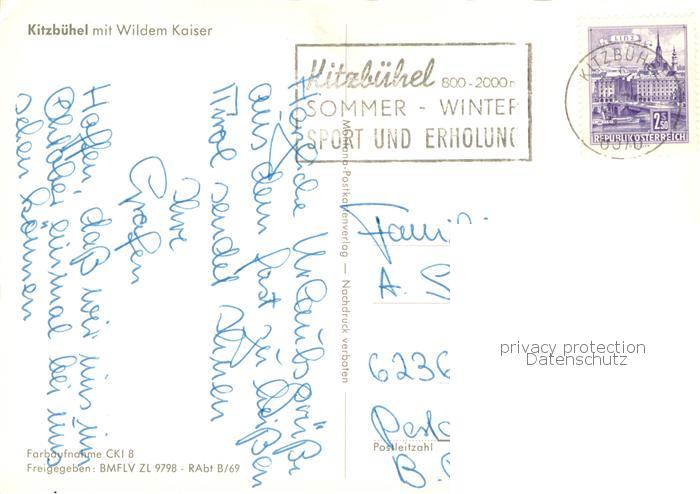 Kitzbühel mit Wildem Kaiser
Kitzbühel 800-2000m
SOMMER - WINTER
SPORT UND ERHOLUNG
LINZ
2.50
REPUBLIK ÖSTERREICH
KITZBÜH
6370
Herzliche Urlaubsgrüße
aus dem fast zu heißen
Tirol sendet Ihnen
Ihre
Hoffen, daß wir uns im
Oktober einmal bei uns
sehen können
Montana-Postkartenverlag — Nachdruck verboten
Fami
A.
6236
Postleitzahl
B.
privacy protection
Datenschutz
Farbaufnahme CKI 8
Freigegeben: BMFLV ZL 9798 - RAbt B/69